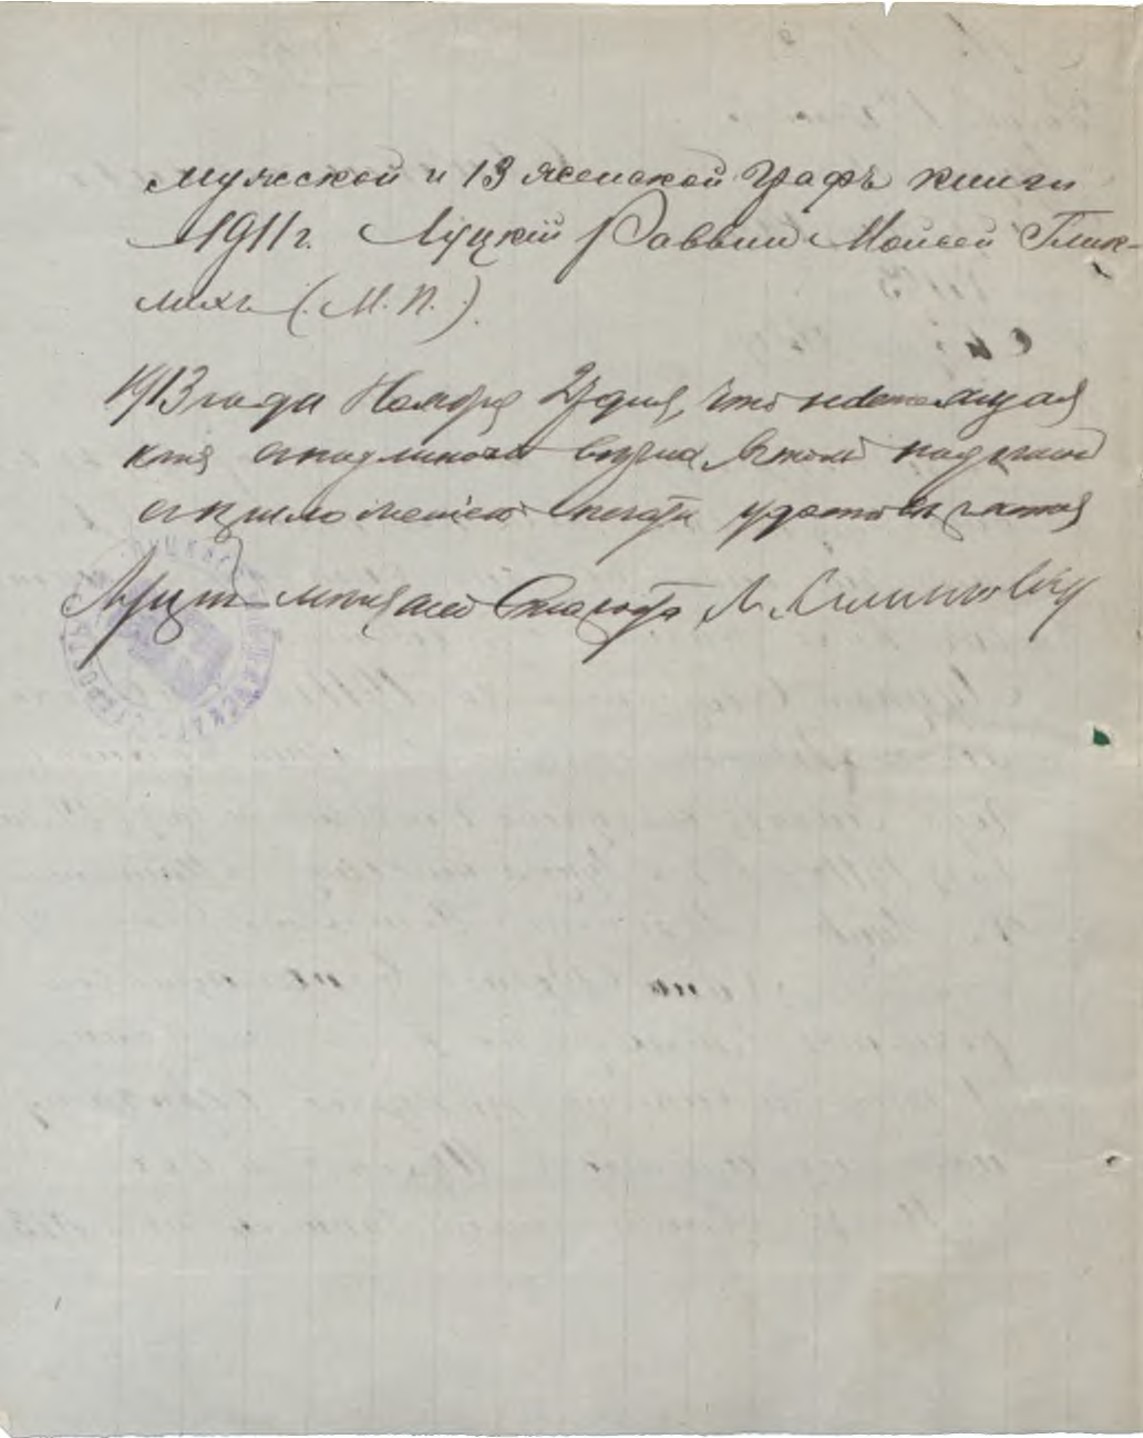 мужской и 13 женской графѣ книги
1911 г. Луцкій Раввин Моисей Глик-
лихъ (М. П.).
1913 года Ноября 27 дня, что настоящая
копія с подлинной вѣрна, в том подписью
с приложеніем печати удостовѣряется
Луцкій мѣщанскій Староста Л.